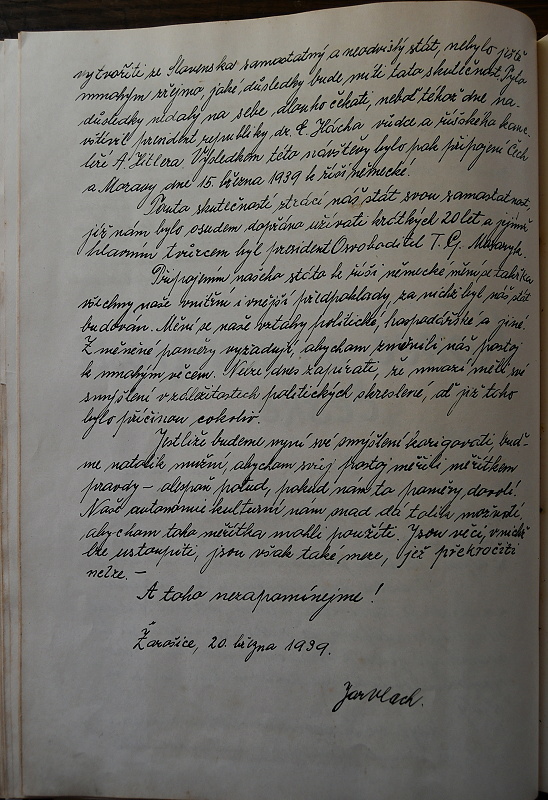 vytvořiti ze Slovenska samostatný a neodvislý stát, nebylo ještě
mnohým zřejmo, jaké důsledky bude míti tato skutečnost. Tyto
důsledky nedaly na sebe dlouho čekati, neboť téhož dne na-
vštívil president republiky dr. E. Hácha vůdce a říšského kanc-
léře A. Hitlera. Výsledkem této návštěvy bylo pak připojení Čech
a Moravy dne 15. března 1939 k říši německé.
Touto skutečností ztrácí náš stát svou samostatnost,
jíž nám bylo osudem dopřáno užívati krátkých 20 let a jejímž
hlavním tvůrcem byl president Osvoboditel T. G. Masaryk.
Připojením našeho státu k říši německé mění se takřka
všechny naše vnitřní i vnější předpoklady, za nichž byl náš stát
budován. Mění se naše vztahy politické, hospodářské a jiné.
Změněné poměry vyžadují, abychom změnili náš postoj
k mnohým věcem. Nelze dnes zapírati, že mnozí měli své
smýšlení v záležitostech politických zkreslené, ať již toho
bylo příčinou cokoliv.
Jestliže budeme nyní své smýšlení korigovati, buď-
me natolik mužní, abychom svůj postoj měřili měřítkem
pravdy – alespoň potud, pokud nám to poměry dovolí.
Naše autonomie kulturní nám snad dá tolik možností,
abychom toho měřítka mohli použíti. Jsou věci, v nichž
lze ustoupiti, jsou však také meze, jež překročiti
nelze. –
A toho nezapomínejme!
Žarošice, 20. března 1939.
Jar Vlach.